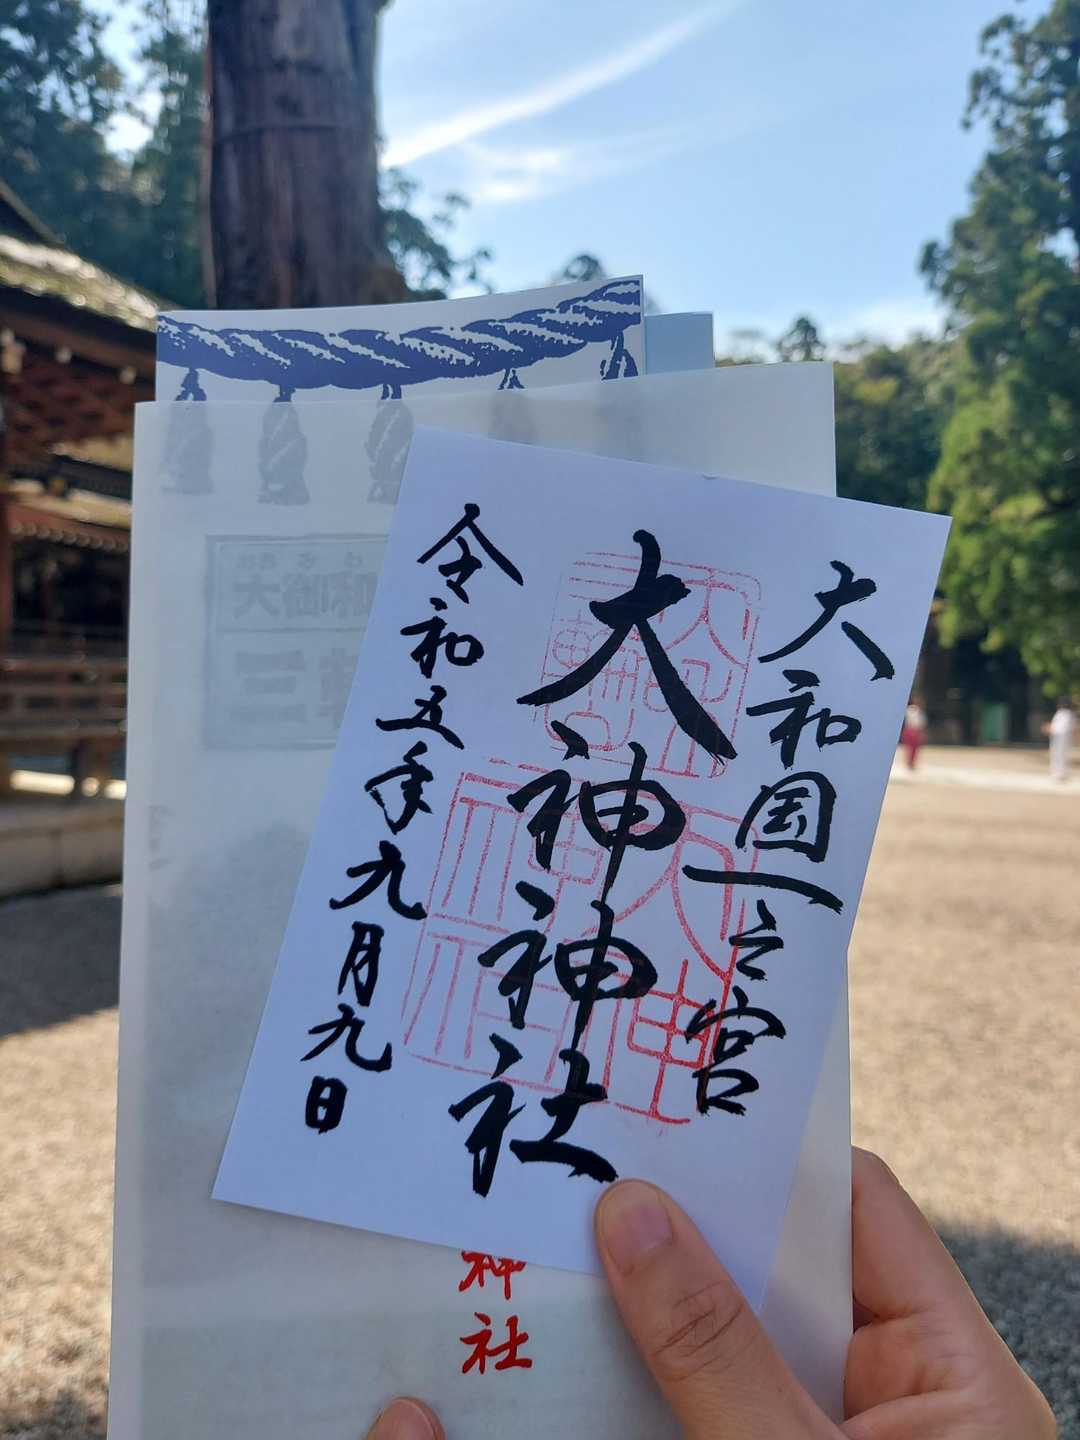 大和国一之宮
大神神社
令和五年九月九日
大御和
三
神社